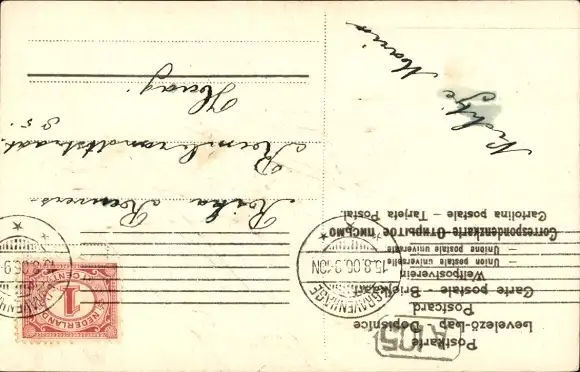 Postkarte
Levelező-Lap Dopisnice
Postcard
Carte postale - Briefkaart
Weltpostverein
— Union postale universelle —
— Unione postale universale —
Correspondenzkarte-Открытое письмо
Cartolina postale - Tarjeta Postal
A 105
'S GRAVENHAGE
13.8.06.9-10N
NEDERLAND
1
CENT
Rika
Rembrandtstraat
95.
Haag.
Nichtje
Marie